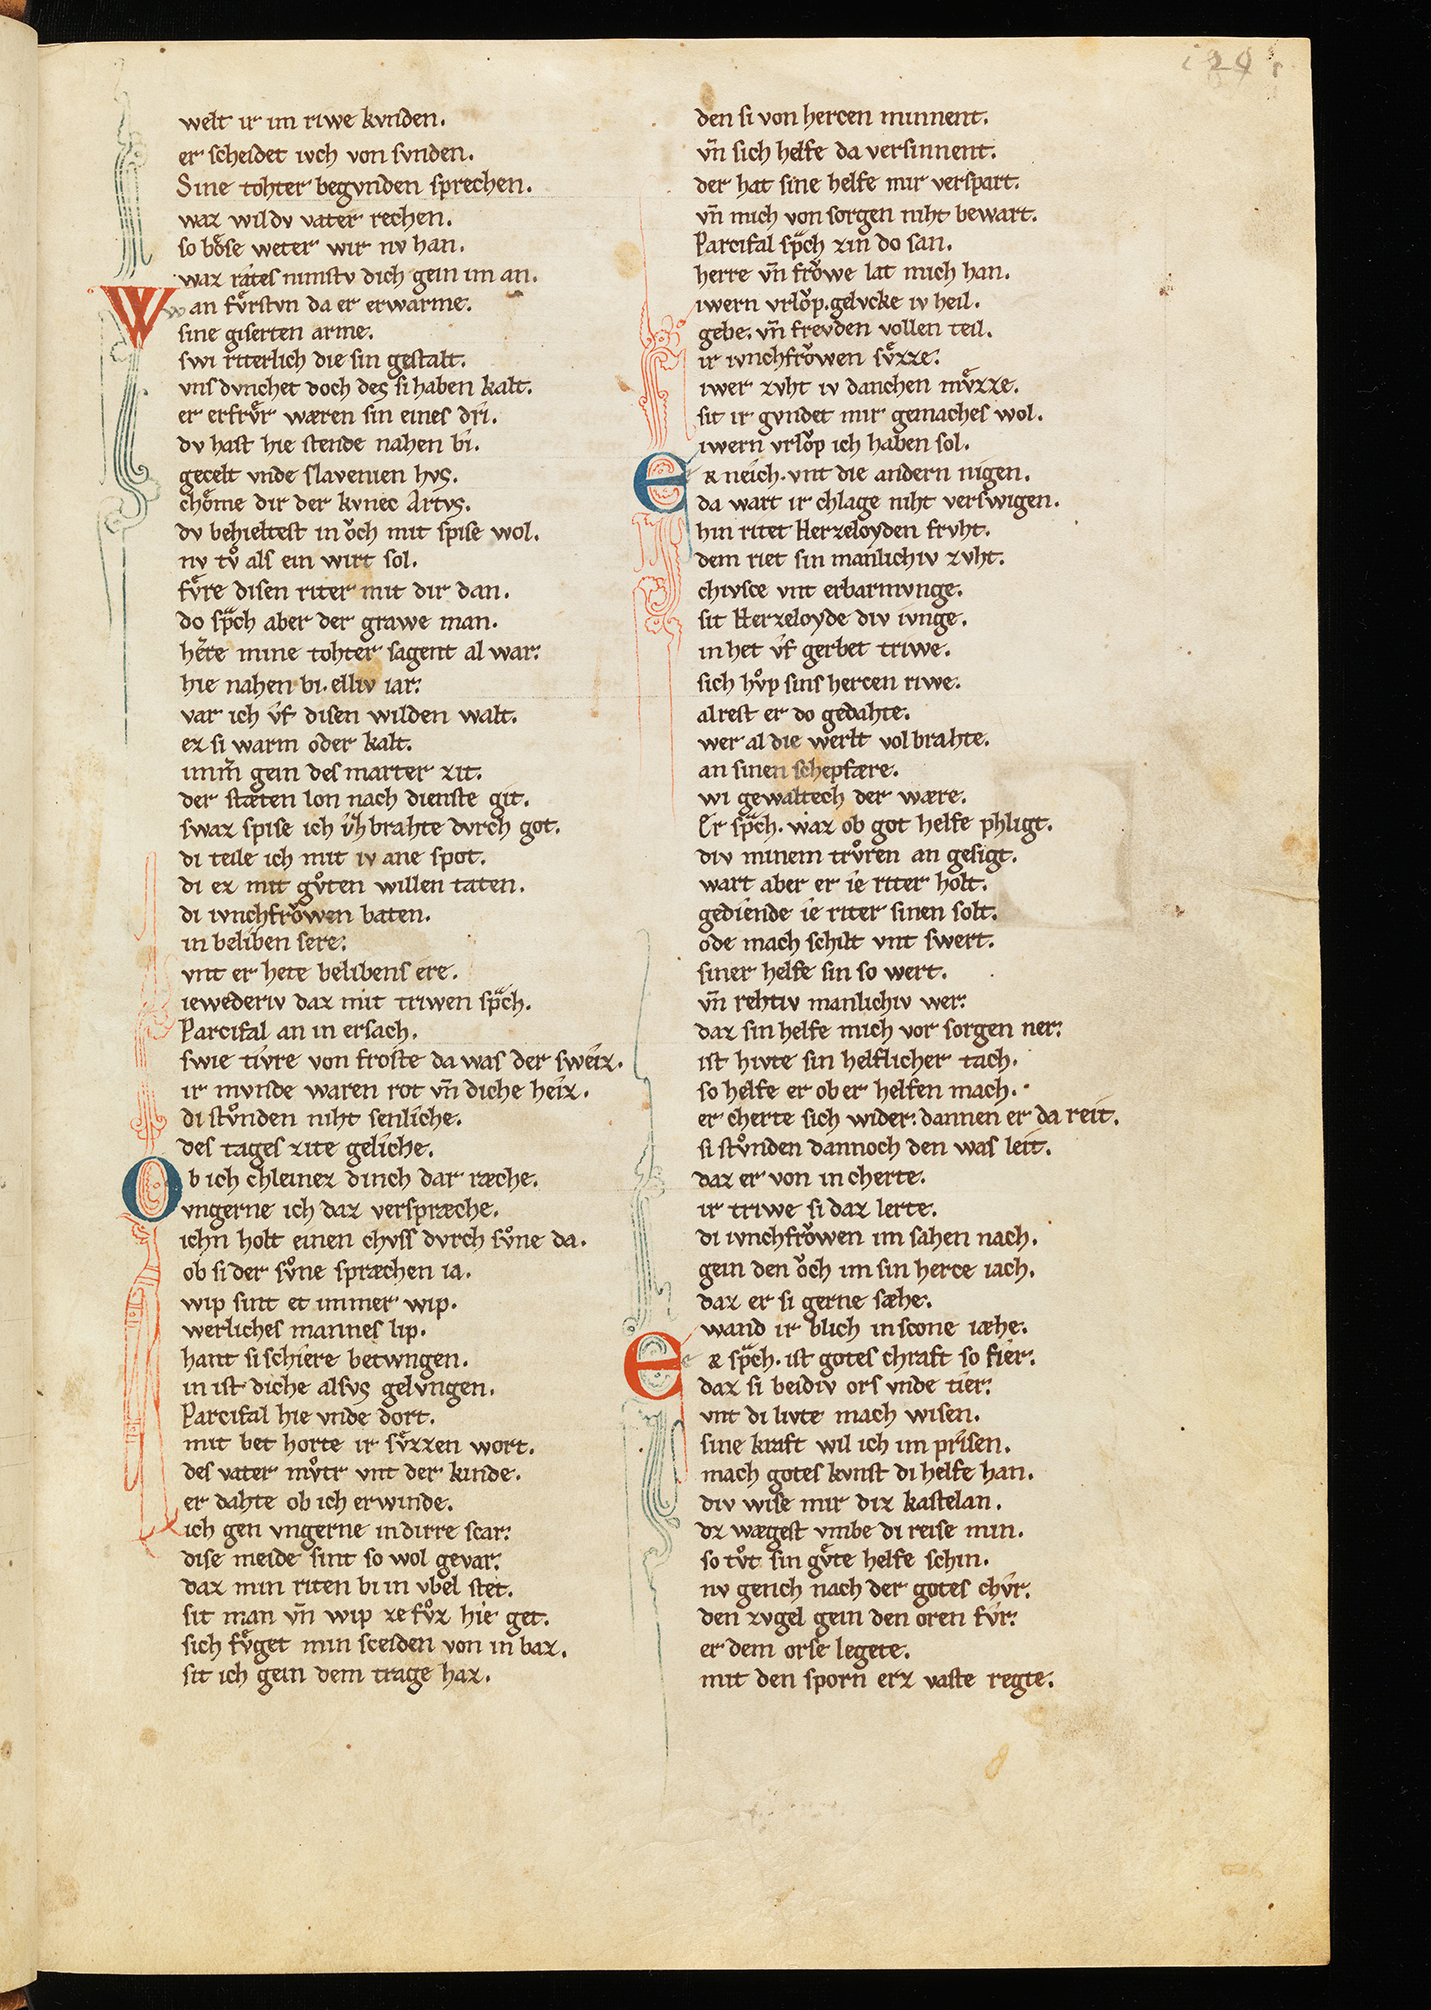 welt ir im riwe kvnden.
er scheidet ivch von svnden.
Sine tohter begvnden sprechen.
waz wil dv vater rechen.
so boͤse weter wir nv han.
waz rates nimstv dich gein im an.
Wan fvͤrstvn da er erwarme.
sine giserten arme.
swi riterlich die sin gestalt.
vns dvnchet doch des si haben kalt.
er erfrvͤr wæren sin eines dri.
dv hast hie stende nahen bi.
gecelt vnde slavenien hvs.
choͤme dir der kvnec Artvs.
dv behieltest in oͮch mit spise wol.
nv tvͦ als ein wirt sol.
fvͤre disen riter mit dir dan.
do spᵃch aber der grawe man.
hẽre mine tohter sagent al war:
hie nahen bi. elliv iar:
var ich vf disen wilden walt.
ez si warm oder kalt.
imm̃ gein des marter zit.
der stæten lon nach dienste git.
swaz spise ich vͤh brahte dvrch got.
di teile ich mit iv ane spot.
di ez mit gvͦten willen taten.
di ivnchfroͮwen baten.
in beliben sere:
vnt er hete belibens ere.
iewederiv daz mit triwen spᵃch.
Parcifal an in ersach.
swie tivre von froste da was der sweiz.
ir mvnde waren rot vñ diche heiz.
di stvͦnden niht senliche.
des tages zite geliche.
Ob ich chleinez dinch dar ræche.
vngerne ich daz verspræche.
ichn holt einen chvss dvrch svͦne da.
ob si der svͦne spræchen ia.
wip sint et immer wip.
werliches mannes lip.
hant si schiere betwngen.
in ist diche alsvs gelvngen.
Parcifal hie vnde dort.
mit bet horte ir svͤzzen wort.
des vater mvͦtr vnt der kinde.
er dahte ob ich erwinde.
ich gen vngerne in dirre scar:
dise meide sint so wol gevar:
daz min riten bi in vbel stet.
sit man vñ wip ze fvͦz hie get.
sich fvͤget min sceiden von in baz.
sit ich gein dem trage haz.
129
den si von hercen minnent.
vñ sich helfe da versinnent.
der hat sine helfe mir verspart.
vñ mich von sorgen niht bewart.
Parcifal spᵃch zin do san.
herre vñ froͮwe lat mich han.
iwern vrloͮp. gelvcke iv heil.
gebe. vñ frevden vollen teil.
ir ivnchfroͮwen svͤzze:
iwer zvht iv danchen mvͤzze.
sit ir gvndet mir gemaches wol.
iwern vrloͮp ich haben sol.
Er neich. vnt die andern nigen.
da wart ir chlage niht verswigen.
hin ritet Herzeloyden frvht.
dem riet sin manlichiv zvht.
chivsce vnt erbarmvnge.
sit Herzeloyde div ivnge.
in het vf gerbet triwe.
sich hvͦp sins hercen riwe.
alrest er do gedahte.
wer al die werlt vol brahte.
an sinen schepfære.
wi gewaltech der wære.
Er spᵃch. waz ob got helfe phligt.
div minem trvͦren an gesigt.
wart aber er ie riter holt.
gediende ie riter sinen solt.
ode mach schilt vnt swert.
siner helfe sin so wert.
vñ rehtiv manlichiv wer:
daz sin helfe mich vor sorgen ner:
ist hivte sin helflicher tach.
so helfe er ob er helfen mach.
er cherte sich wider: dannen er da reit.
si stvͦnden dannoch den was leit.
daz er von in cherte.
ir triwe si daz lerte.
di ivnchfroͮwen im sahen nach.
gein den oͮch im sin herce iach.
daz er si gerne sæhe.
wand ir blich in scone iæhe.
Er spᵃch. ist gotes chraft so fier.
daz si beidiv ors vnde tier:
vnt di livte mach wisen.
sine kraft wil ich im prisen.
mach gotes kvnst di helfe han.
div wise mir diz kastelan.
dz wægest vmbe di reise min.
so tvͦt sin gvͤte helfe schin.
nv gench nach der gotes chvr:
den zvgel gein den oren fvr:
er dem orse legete.
mit den sporn erz vaste regte.